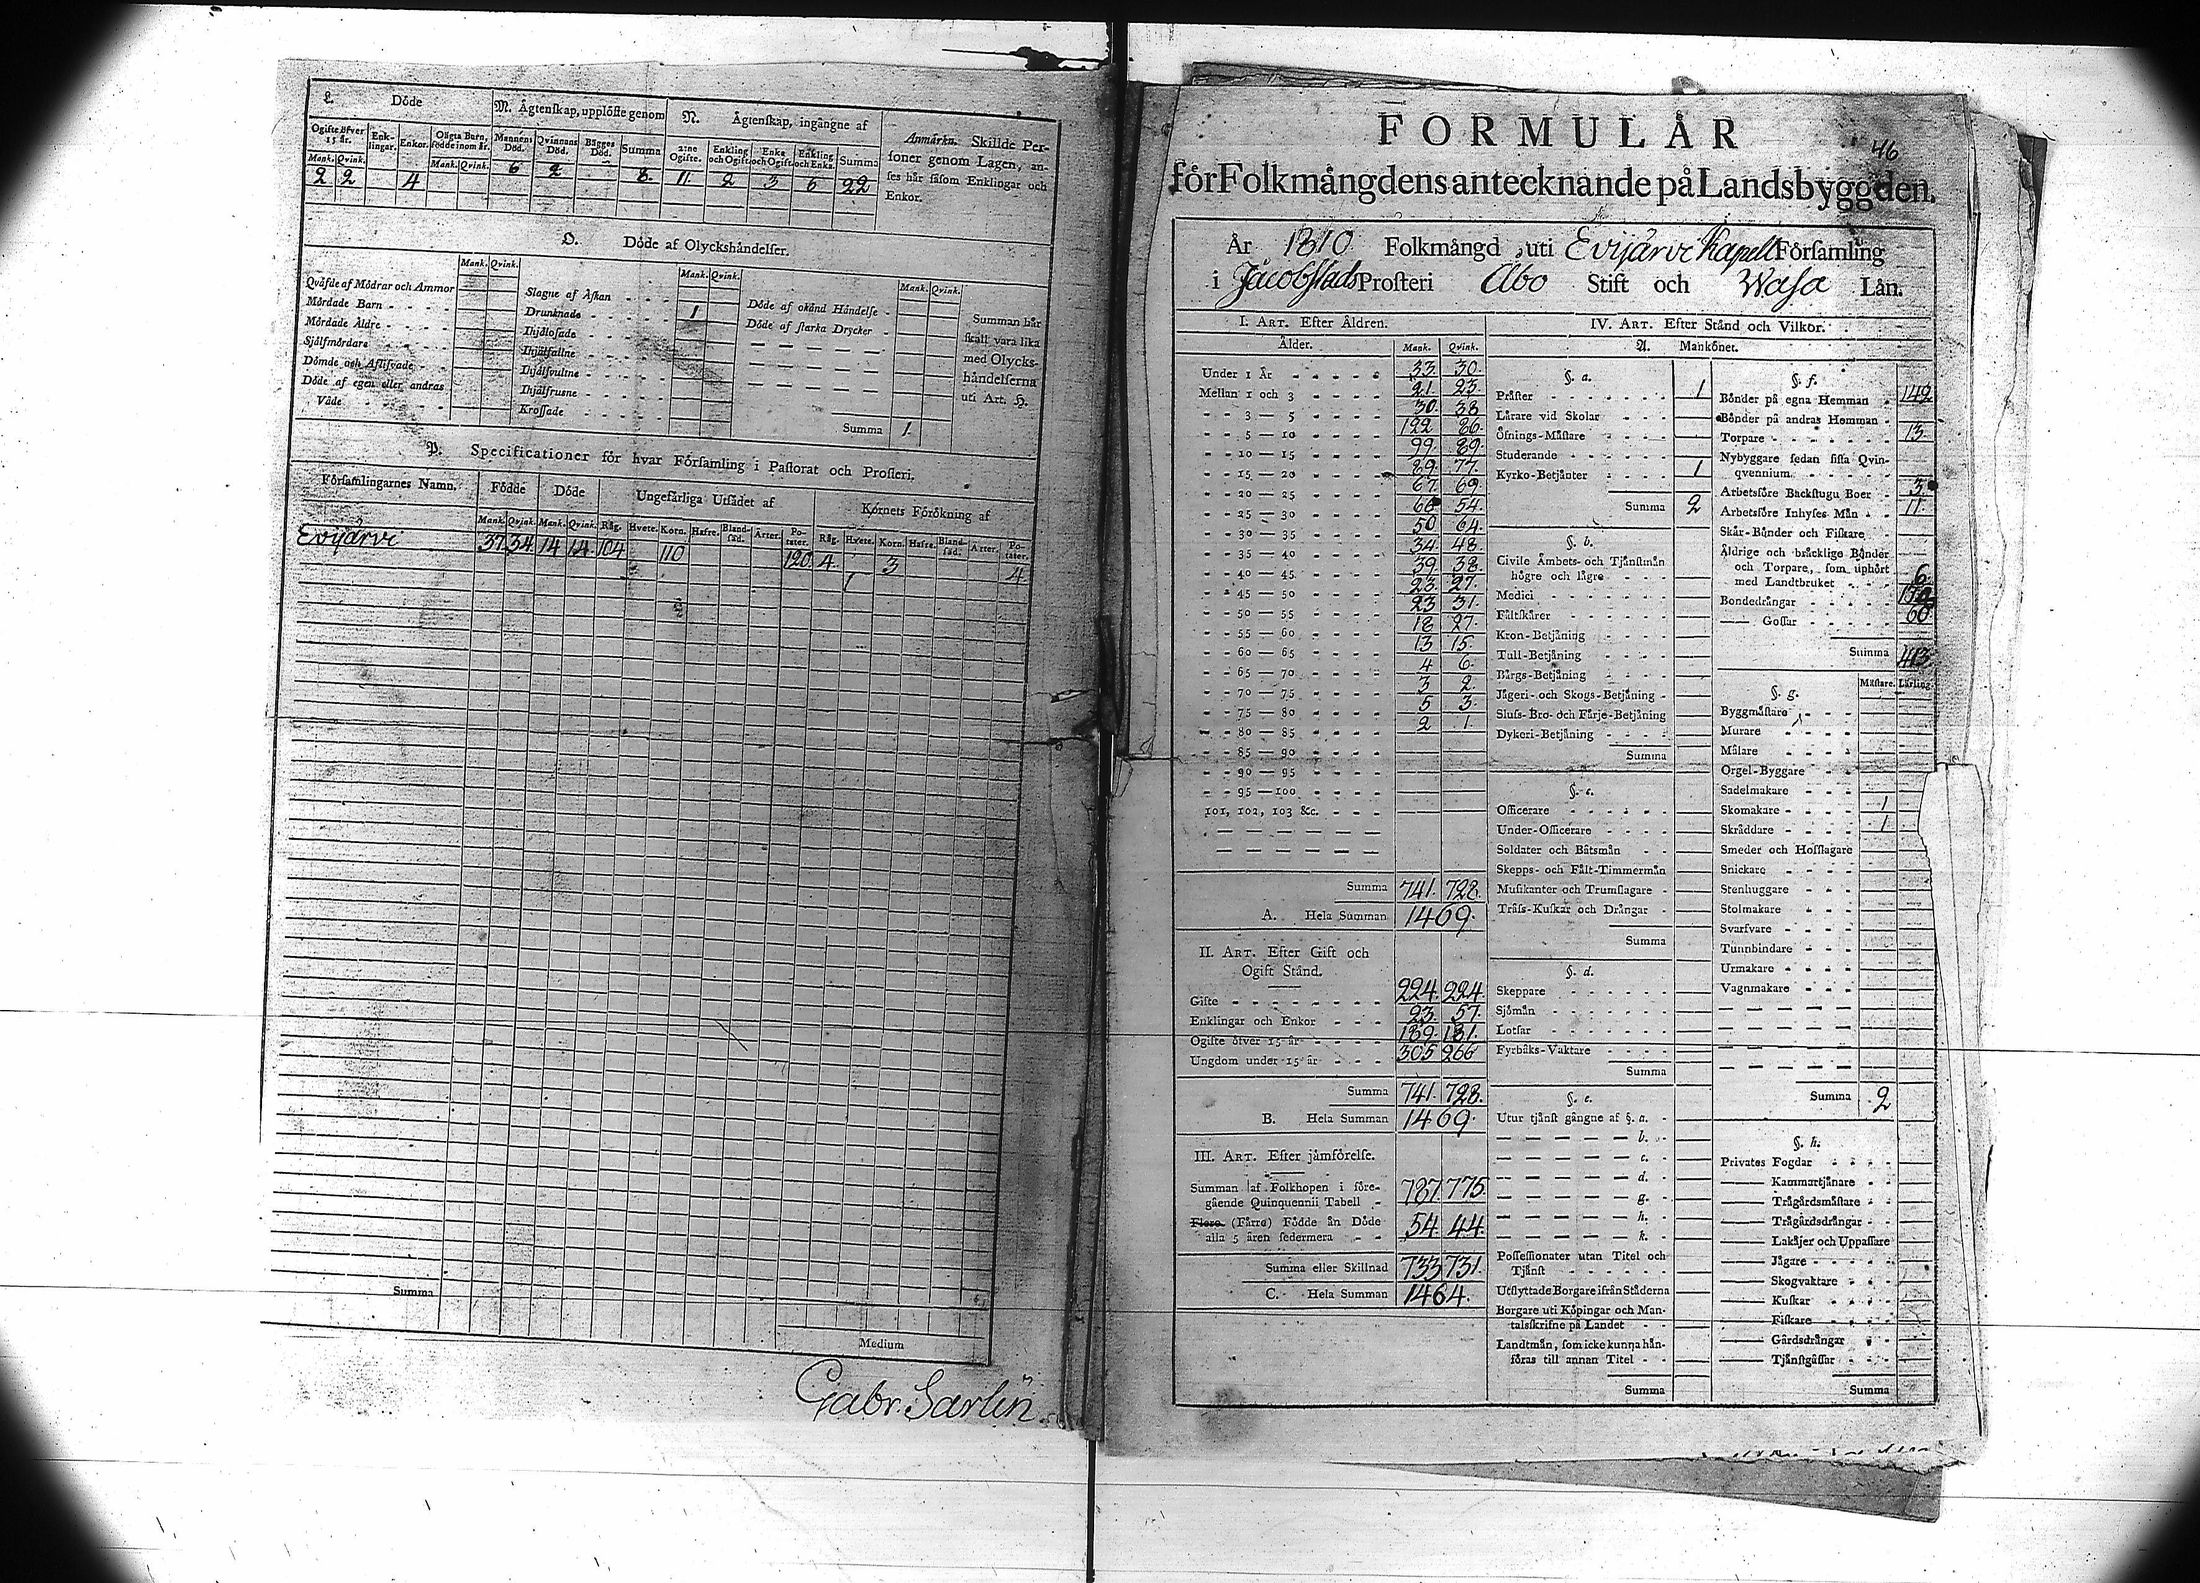 L. Döde
M. Ägtenskap, upplöste genom
N. Ägtenskap, ingångne af
Anmärkn. Skillde Personer genom Lagen, anses här såsom Enklingar och Enkor.
Ogifte öfver 15 år. Enklingar. Enkor. Oägta Barn, födde inom år. Mannens Död. Qvinnans Död. Bägges Död. Summa 2:ne Ogifte. Enkling och Ogift. Enka och Ogift. Enkling och Enka. Summa
Mank. Qvink. Mank. Qvink.
2 2 4 6 2 8 11. 2 3 6 22
O. Döde af Olyckshändelser.
Mank. Qvink. Mank. Qvink. Mank. Qvink.
Qväfde af Mödrar och Ammor
Mördade Barn
Mördade Äldre
Sjelfmördare
Dömde och Aflifvade
Döde af egen eller andras Våde
Slagne af Åskan
Drunknade 1
Ihjälofade
Ihjälfallne
Ihjälfvultne
Ihjälfrusne
Krossade
Döde af okänd Händelse
Döde af starka Drycker
Summa 1.
Summan här skall vara lika med Olyckshändelserna uti Art. H.
P. Specificationer för hvar Församling i Pastorat och Prosteri.
Församlingarnes Namn. Födde Döde Ungefärliga Utsädet af Kornets Förökning af
Mank. Qvink. Mank. Qvink. Råg. Hvete. Korn. Hafre. Blandsäd. Ärter. Potater. Råg. Hvete. Korn. Hafre. Blandsäd. Ärter. Potater.
Evijärvi 37. 34. 14 14. 104 110 120. 4. 3 4
Summa
Medium
Gabr. Sarlin
FORMULÄR
46
för Folkmängdens antecknande på Landsbyggden.
År 1810 Folkmängd uti Evijärvi Kapell Församling
i Jacobstads Prosteri Abo Stift och Wasa Län.
I. Art. Efter Åldren.
Ålder. Mank. Qvink.
Under 1 År 33. 30.
Mellan 1 och 3 21. 23.
3 — 5 30. 38
5 — 10 122 86.
10 — 15 99. 89.
15 — 20 89. 77.
20 — 25 67. 69.
25 — 30 66 54.
30 — 35 50 64.
35 — 40 34. 48.
40 — 45 39. 38.
45 — 50 23. 27.
50 — 55 23 31.
55 — 60 18 27.
60 — 65 13 15.
65 — 70 4 6.
70 — 75 3 2.
75 — 80 5 3.
80 — 85 2 1.
85 — 90
90 — 95
95 — 100
101, 102, 103 &c.
Summa 741. 728.
A. Hela Summan 1469.
II. Art. Efter Gift och
Ogift Stånd.
Gifte 224. 224.
Enklingar och Enkor 23. 57.
Ogifte öfver 15 år 189. 181.
Ungdom under 15 år 305 266
Summa 741. 728.
B. Hela Summan 1469.
III. Art. Efter jämförelse.
Summan af Folkhopen i föregående Quinquennii Tabell 787 775.
Flere (Färre) Födde än Döde
alla 5 åren sedermera 54. 44.
Summa eller Skillnad 733 731.
C. Hela Summan 1464.
IV. Art. Efter Stånd och Vilkor.
A. Mankönet.
§. a.
Präster 1
Lärare vid Skolar
Öfnings-Mästare
Studerande
Kyrko-Betjänter 1
Summa 2
§. b.
Civile Ämbets- och Tjänstmän
högre och lägre
Medici
Fältskärer
Kron-Betjäning
Tull-Betjäning
Bärgs-Betjäning
Jägeri- och Skogs-Betjäning
Sluss- Bro- och Färje-Betjäning
Dykeri-Betjäning
Summa
§. c.
Officerare
Under-Officerare
Soldater och Båtsmän
Skepps- och Fält-Timmermän
Musikanter och Trumslagare
Träss-Kuskar och Drängar
Summa
§. d.
Skeppare
Sjömän
Lotsar
Fyrbåks-Vaktare
Summa
§. e.
Utur tjänst gångne af §. a.
b.
c.
d.
g.
h.
k.
Possessionater utan Titel och
Tjänst
Utflyttade Borgare ifrån Städerna
Borgare uti Köpingar och Mantalsskrifne på Landet
Landtmän, som icke kunna hänföras till annan Titel
Summa
§. f.
Bönder på egna Hemman 142
Bönder på andras Hemman
Torpare 13.
Nybyggare sedan sista Qvinqvennium
Arbetsföre Backstugu Boer 3
Arbetsföre Inhyses Män 11.
Skär-Bönder och Fiskare
Äldrige och bräcklige Bönder
och Torpare, som uphört
med Landtbruket 6
Bondedrängar
— Gossar 60
Summa 413.
Mästare. Lärling.
§. g.
Byggmästare
Murare
Målare
Orgel-Byggare
Sadelmakare
Skomakare 1
Skräddare 1
Smeder och Hofslagare
Snickare
Stenhuggare
Stolmakare
Svarfvare
Tunnbindare
Urmakare
Vagnmakare
Summa 2
§. h.
Privates Fogdar
— Kammartjänare
— Trägårdsmästare
— Trägårdsdrängar
— Lakäjer och Uppassare
— Jägare
— Skogvaktare
— Kuskar
— Fiskare
— Gårdsdrängar
— Tjänstgåssar
Summa